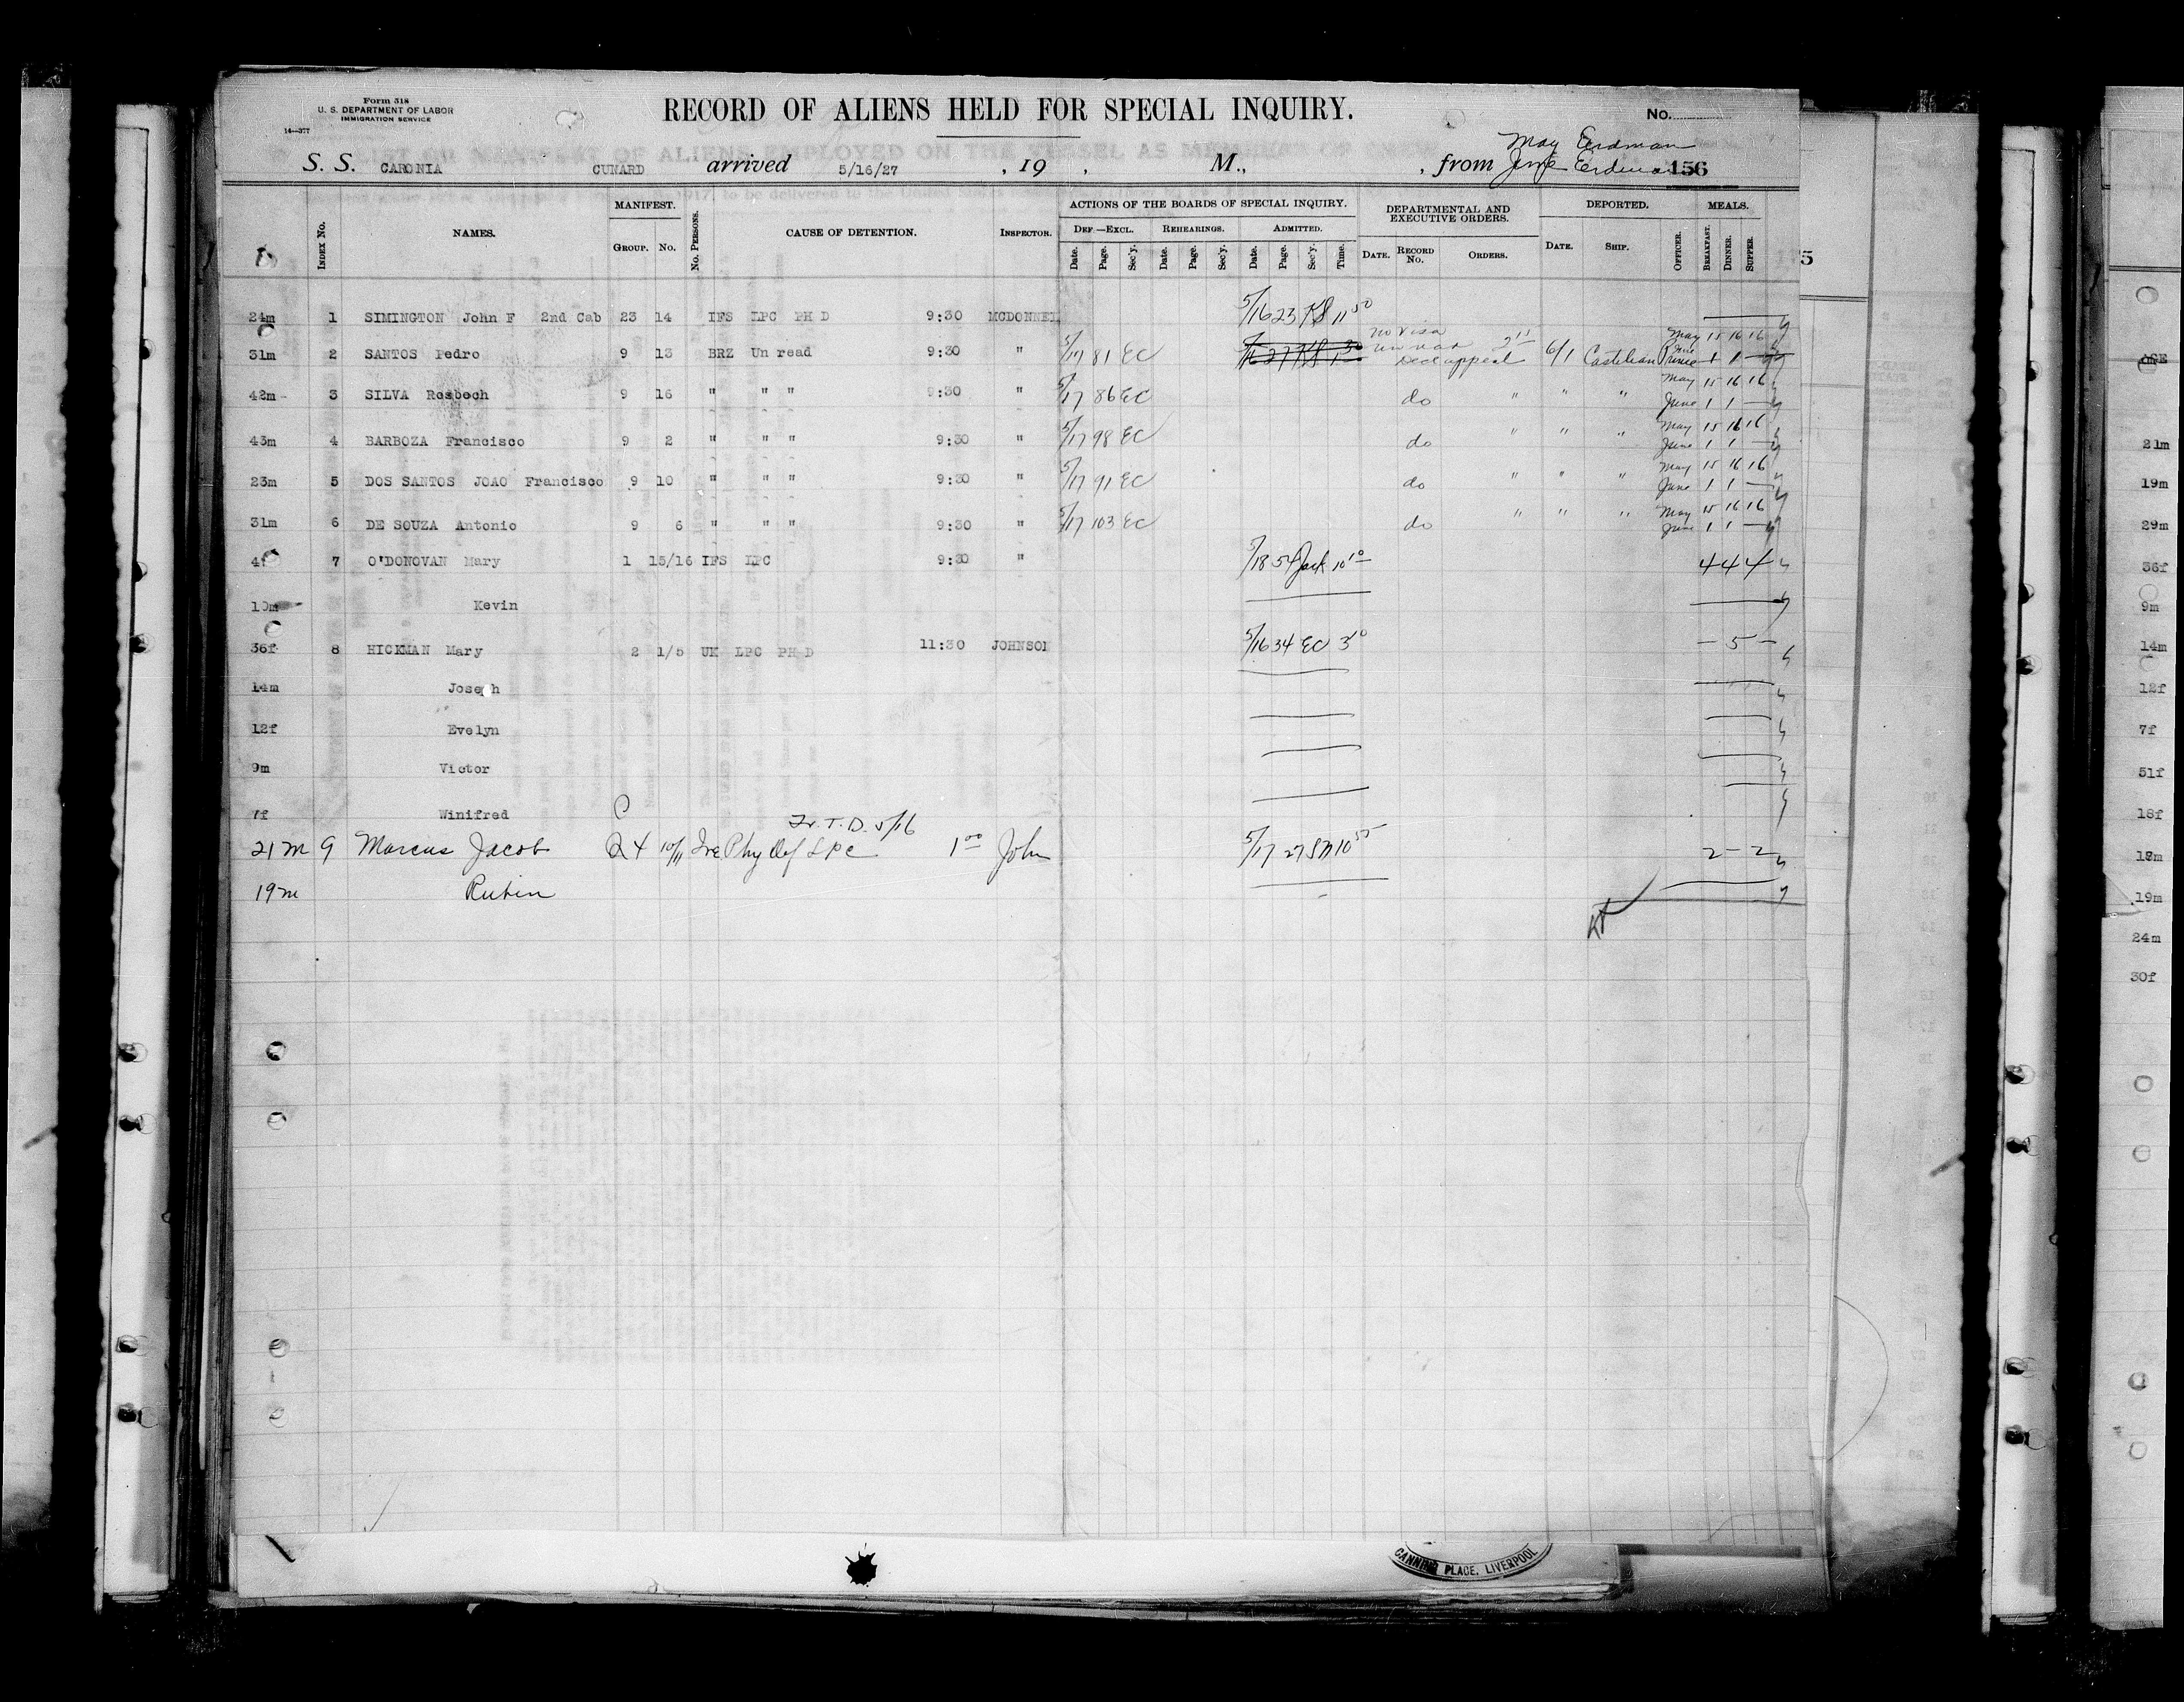 Form 318
U. S. DEPARTMENT OF LABOR
IMMIGRATION SERVICE
14—377
RECORD OF ALIENS HELD FOR SPECIAL INQUIRY.
No.
May Erdman
S. S. CARONIA CUNARD arrived 5/16/27 , 19 . M., , from June Erdman 156
INDEX No. NAMES. MANIFEST. GROUP. No. No. PERSONS. CAUSE OF DETENTION. INSPECTOR. ACTIONS OF THE BOARDS OF SPECIAL INQUIRY. DEF.—EXCL. Date. Page. Sec'y. REHEARINGS. Date. Page. Sec'y. ADMITTED. Date. Page. Sec'y. Time. DEPARTMENTAL AND EXECUTIVE ORDERS. DATE. RECORD No. ORDERS. DEPORTED. DATE. SHIP. OFFICER. MEALS. BREAKFAST. DINNER. SUPPER.
24m 1 SIMINGTON John F 2nd Cab 23 14 IFS LPC PH D 9:30 MCDONNEL 5/16 23 KS 11 50
no visa May 15 16 16
31m 2 SANTOS Pedro 9 13 BRZ Un read 9:30 " 5/17 81 EC Decd appeal 6/1 Castilian Prince June 1 1 —
May 15 16 16
42m 3 SILVA Rosbech 9 16 " " " 9:30 " 5/17 86 EC do " " " June 1 1 —
May 15 16 16
43m 4 BARBOZA Francisco 9 2 " " " 9:30 " 5/17 98 EC do " " " June 1 1 —
May 15 16 16
23m 5 DOS SANTOS JOAO Francisco 9 10 " " " 9:30 " 5/17 91 EC do " " " June 1 1 —
May 15 16 16
31m 6 DE SOUZA Antonio 9 6 " " " 9:30 " 5/17 103 EC do " " " June 1 1 —
4f 7 O'DONOVAN Mary 1 15/16 IFS LPC 9:30 " 5/18 54 Jack 10 10 4 4 4
10m Kevin
36f 8 HICKMAN Mary 2 1/5 UK LPC PH D 11:30 JOHNSON 5/16 34 EC 3 10 — 5 —
14m Joseph
12f Evelyn
9m Victor
7f Winifred
Tr. T. D. 5/16
21m 9 Marcus Jacob 24 10/11 Ire Phy Def LPC 1 00 John 5/17 27 SM 10 55 2 — 2
19m Rubin
5
AGE
21m
19m
29m
36f
9m
14m
12f
7f
51f
18f
18m
19m
24m
30f
CANNING PLACE, LIVERPOOL